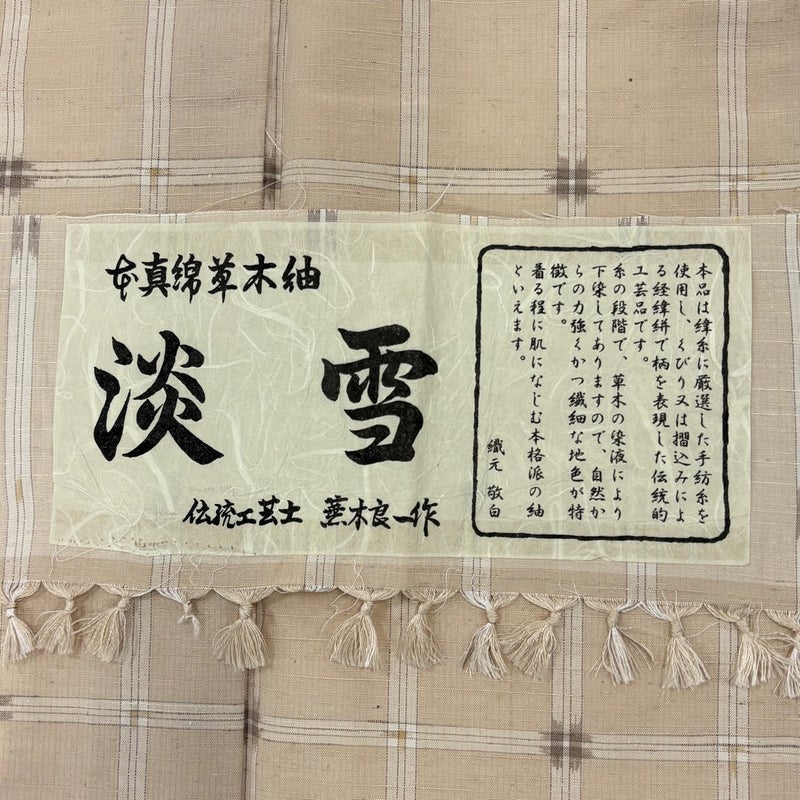 本真綿草木紬
淡雪
伝統工芸士 蕪木良一作
本品は緯糸に厳選した手紡糸を
使用し、くびり又は摺込みによ
る経緯絣で柄を表現した伝統的
工芸品です。
糸の段階で、草木の染液により
下染してありますので、自然か
らの力強くかつ繊細な地色が特
徴です。
着る程に肌になじむ本格派の紬
といえます。
織元 敬白